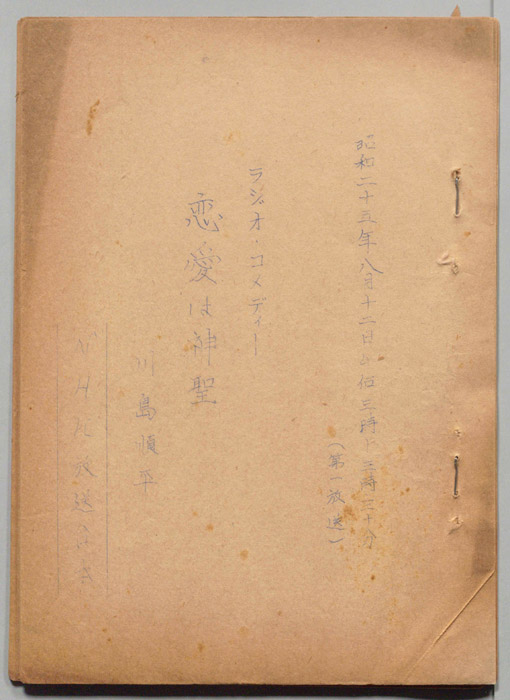 昭和二十三年八月十二日 三時 三時三十分
(第一放送)
ラジオ・コメディー
恋愛は神聖
川島順平
放送